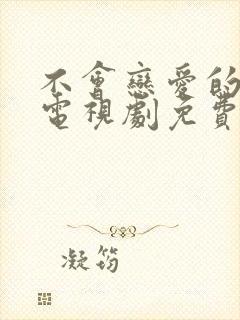 不會戀愛的
電視劇免費
凝筠